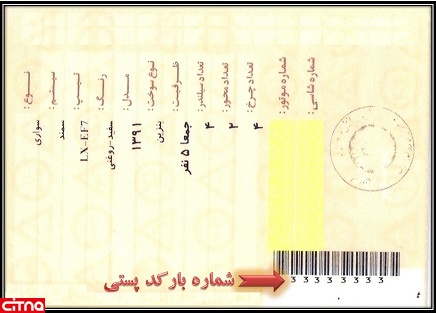 نوع : سواری
سیستم : سمند
تیپ : LX-EF7
رنگ : سفید-روغنی
مدل : ۱۳۹۱
نوع سوخت : بنزین
ظرفیت : جمعا ۵ نفر
تعداد سیلندر : ۴
تعداد محور : ۲
تعداد چرخ : ۴
شماره موتور :
شماره شاسی :
3 3 3 3 3 3 3 3
شماره بار کد پستی
citna